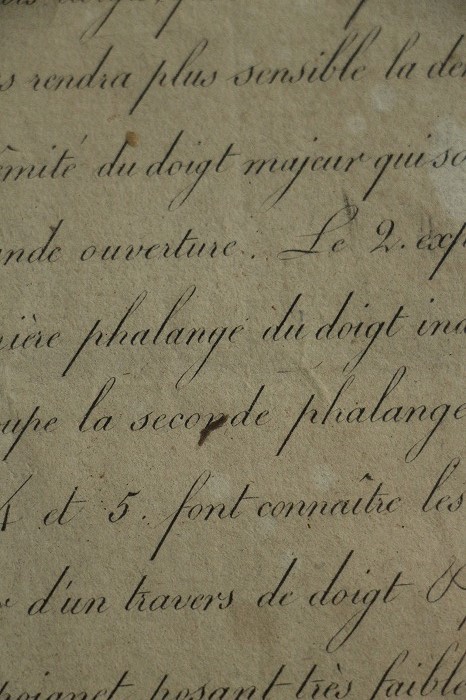 s rendra plus sensible la de
êmité du doigt majeur qui so
ande ouverture. Le 2. exp
nière phalange du doigt ind
oupe la seconde phalange
4 et 5. font connaître les
d'un travers de doigt &
poignet posant très faible